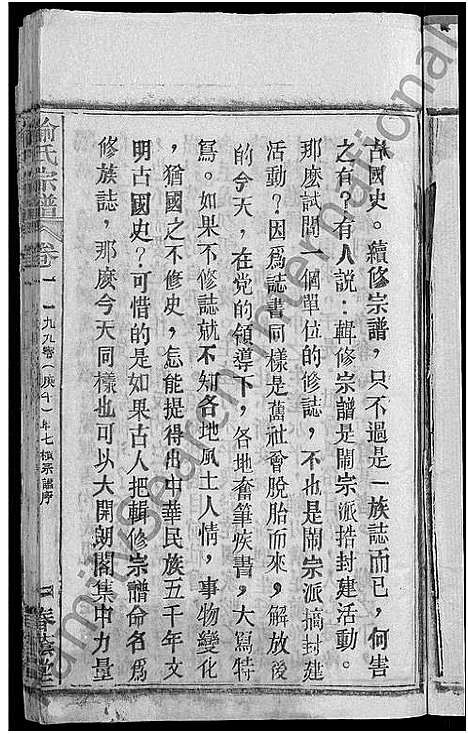 古國史。續修宗譜，只不過是一族誌而已，何害
之有？有人説：輯修宗譜是鬧宗派措封建活動。
那麽試問一個單位的修誌，不也是鬧宗派搞封建
活動？因爲誌書同樣是舊社會脫胎而來，解放後
的今天，在党的領導下，各地奮筆疾書，大寫特
寫。如果不修誌就不知各地風土人情，事物變化
，猶國之不修史，怎能提得出中華民族五千年文
明古國史？可惜的是如果古人把輯修宗譜命名爲
修族誌，那麽今天同樣也可以大開朗閣集中力量
俞氏宗譜 卷一 一九九零（庚午）年七修宗譜序
familysearch international